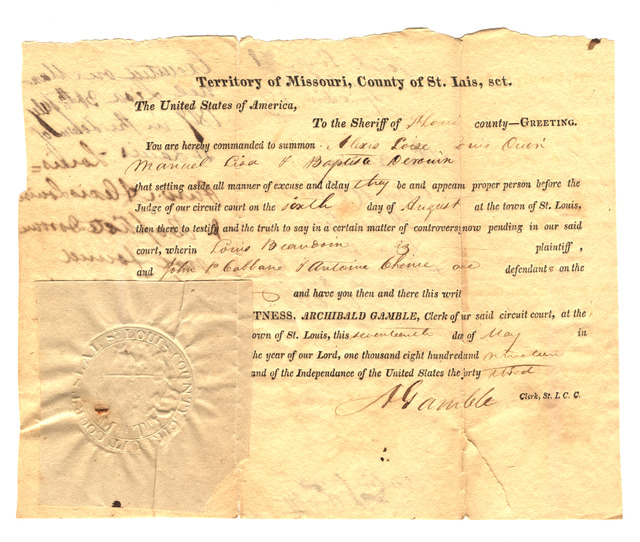 Territory of Missouri, County of St. Lais, sct.
The United States of America,
To the Sheriff of county—GREETING.
You are hereby commanded to summon Alexis Loise
Manuel Lisa & Baptista Derouin
that setting aside all manner of excuse and delay they be and appear proper person before the
Judge of our circuit court on the sixth day of August at the town of St. Louis,
then there to testify and the truth to say in a certain matter of controversy now pending in our said
court, wherein Louis Beaudoin is plaintiff,
and John P Cabbane & Antoine Chenie are defendants on the
and have you then and there this writ
TNESS, ARCHIBALD GAMBLE, Clerk of ur said circuit court, at the
own of St. Louis, this seventeenth day of May in
he year of our Lord, one thousand eight hundred and nineteen
and of the Independance of the United States the forty third
A Gamble Clerk, St. L C. C.
ST LOUIS COUNTY